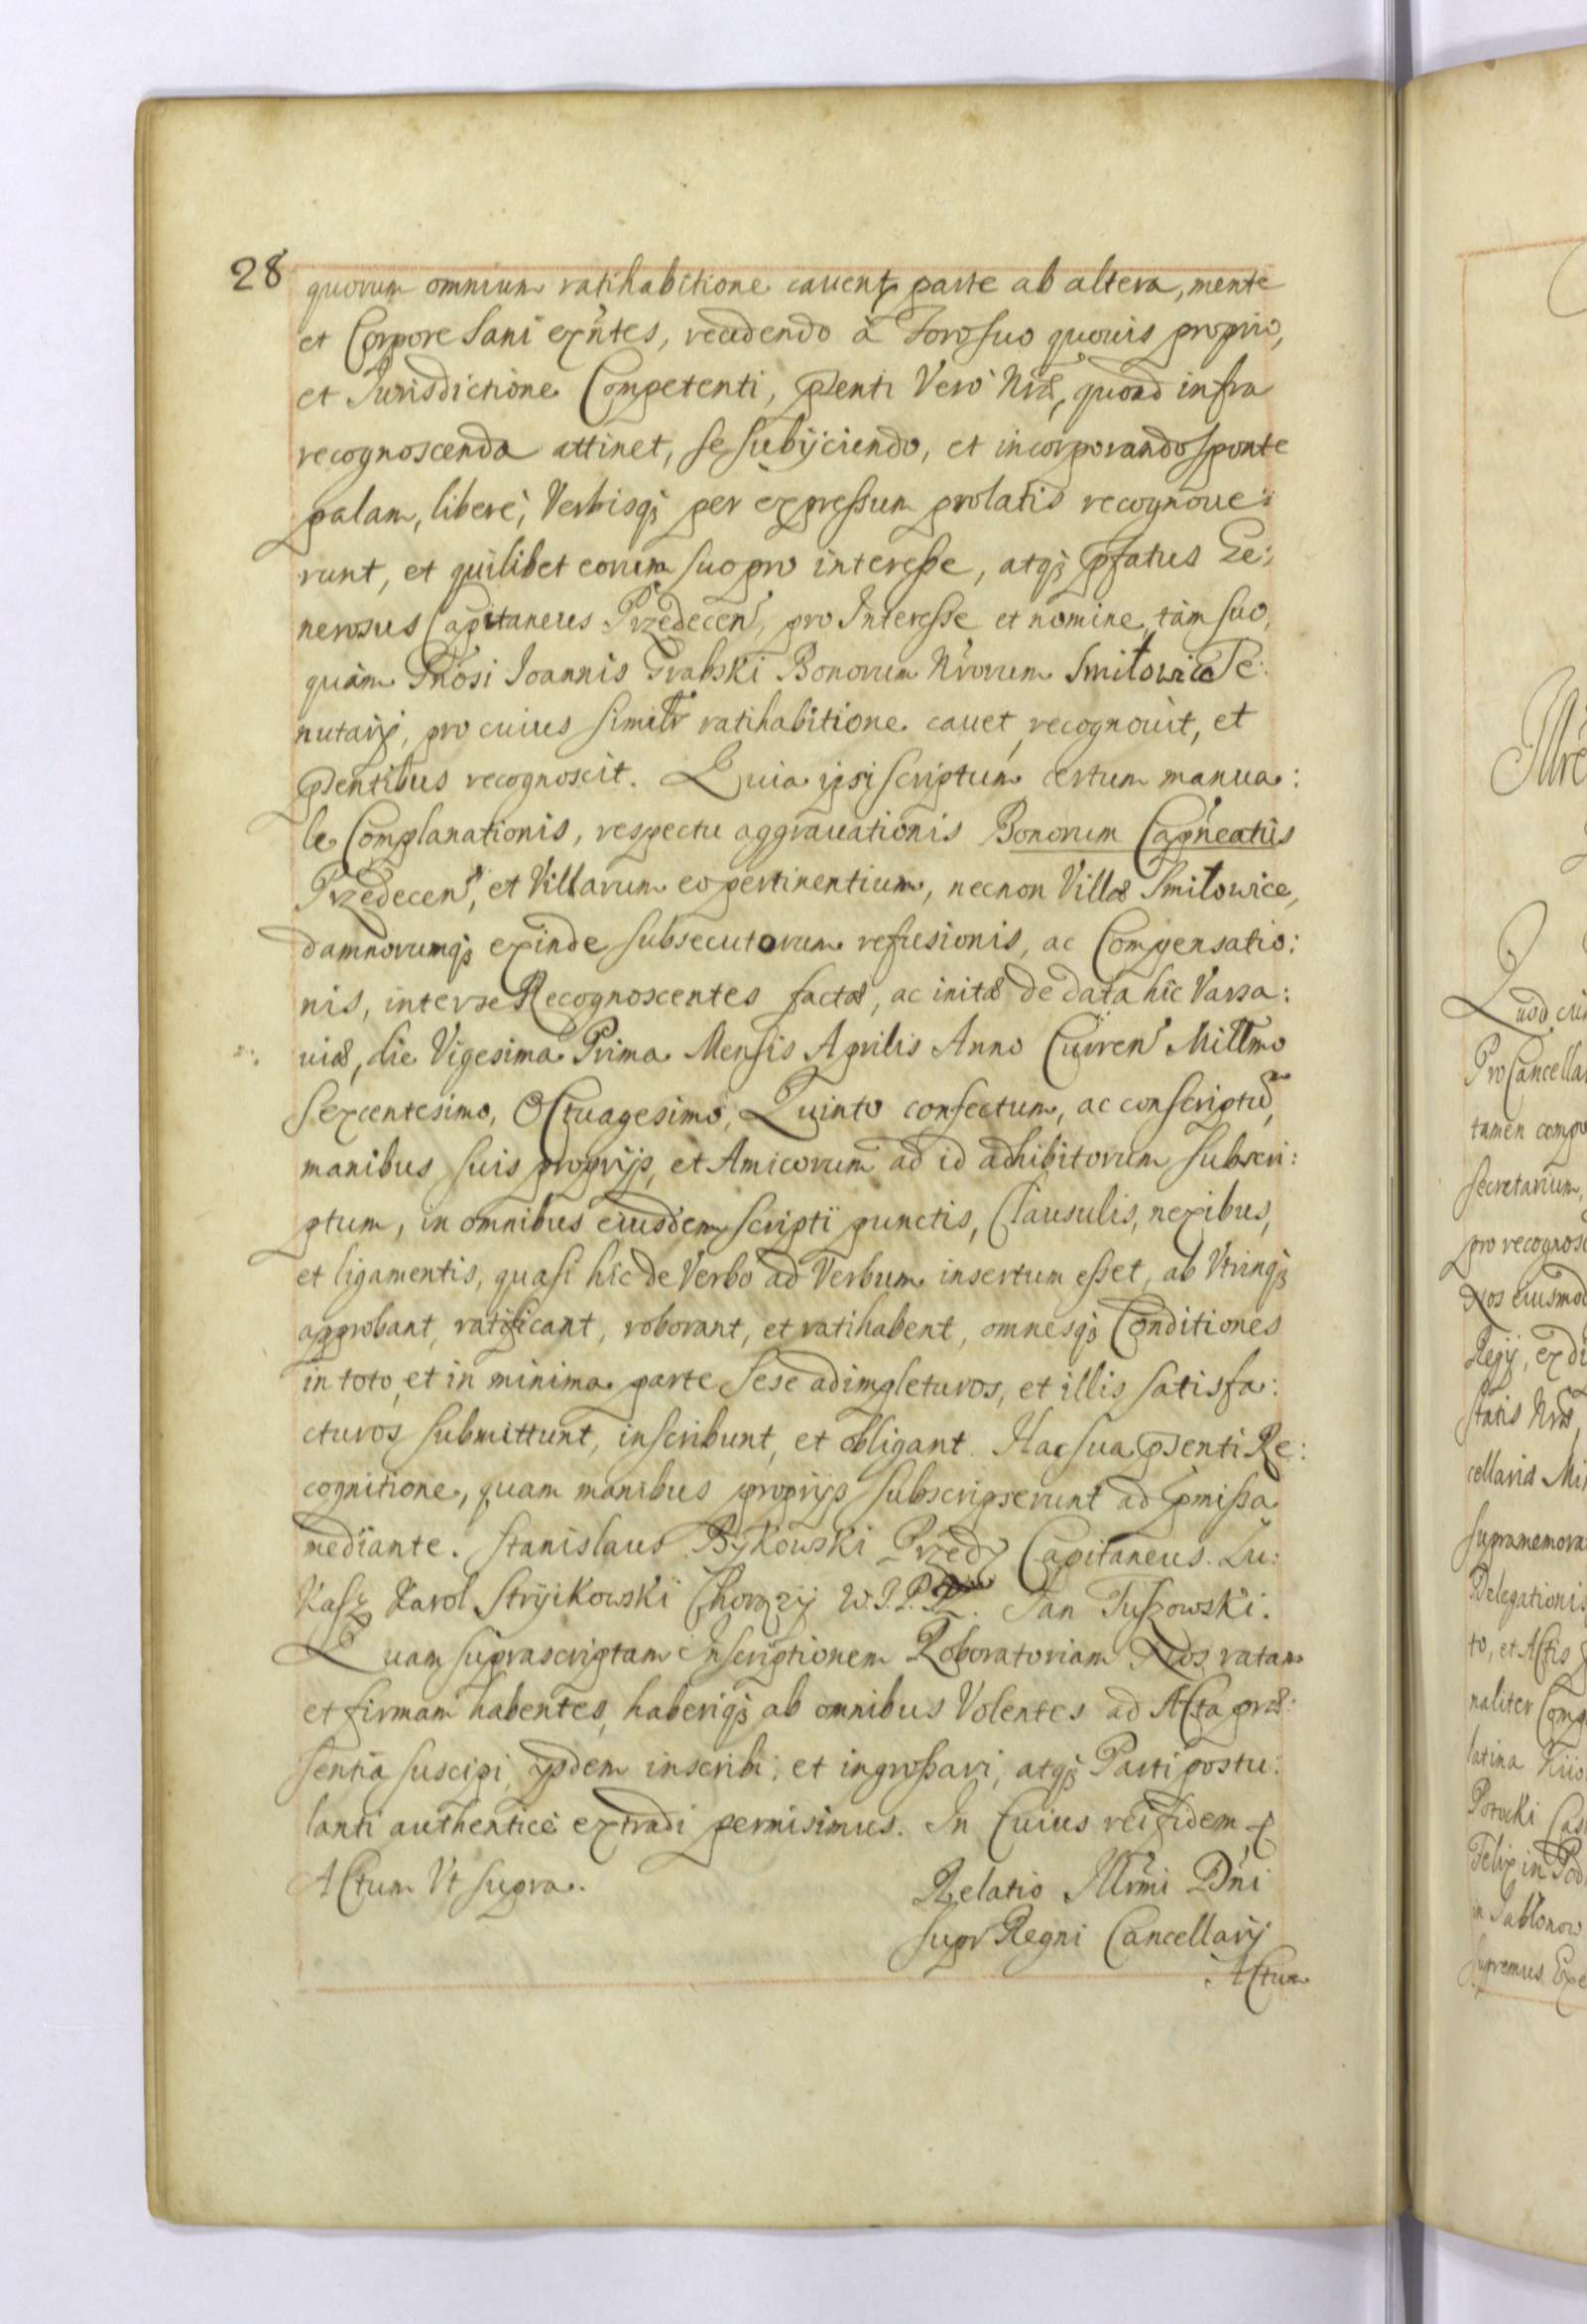 28
quorum omnium ratihabitione cavent, parte ab altera, mente
et Corpore sani exñtes, recedendo à Foro suo quovis proprio,
et Jurisdictione Competenti, pñti Verò Nrã, quoad infra
recognoscenda attinet, se subijciendo, et incorporando sponte
palam, liberè, Verbisq; per expressum prolatis recognove:
runt, et quilibet eorum suo pro interesse, atq; pfatus Ge:
nerosus Capitaneus Przedecen, pro Interesse et nomine, tàm suo,
quàm Gnosi Joannis Grabski Bonorum Nrorum Smiłowice Te:
nutarij, pro cuius similr ratihabitione cavet, recognovit, et
psentibus recognoscit. Quia ipsi scriptum certum manua:
le Complanationis, respectu aggravationis Bonorum Capneatûs
Przedecen, et Villarum eo pertinentium, necnon Villæ Smiłowice,
damnorumq; exinde subsecutorum refusionis, ac Compensatio:
nis, inter se Recognoscentes factæ, ac initæ de data hîc Varsa:
viæ, die Vigesima Prima Mensis Aprilis Anno Curren Millmo
Sexcentesimo, Octuagesimo, Quinto confectum, ac conscriptũ,
manibus suis proprijs, et Amicorum ad id adhibitorum subscri:
ptum, in omnibus eiusdem scripti punctis, Clausulis, nexibus,
et ligamentis, quasi hîc de Verbo ad Verbum insertum esset, ab Utrinq;
approbant, ratificant, roborant, et ratihabent, omnesq; Conditiones
in toto, et in minima parte sese adimpleturos, et illis satisfa:
cturos submittunt, inscribunt, et obligant. Hac sua psenti Re:
cognitione, quam manibus proprijs subscripserunt ad pmissa
mediante. Stanislaus Bykowski Przed Capitaneus. Łu:
kasz Karol Stryikowski Chorąży W.J.P. Jan Tuszowski.
Quam suprascriptam Inscriptionem Roboratoriam Nos ratam
et firmam habentes, haberiq; ab omnibus Volentes ad Acta præ:
sentia suscipi, ijsdem inscribi, et ingrossari, atq; Parti postu:
lanti authenticè extradi permisimus. In Cuius rei fidem &
Actum Ut supra.
Relatio Illrmi Dñi
Supr Regni Cancellarij
Actum